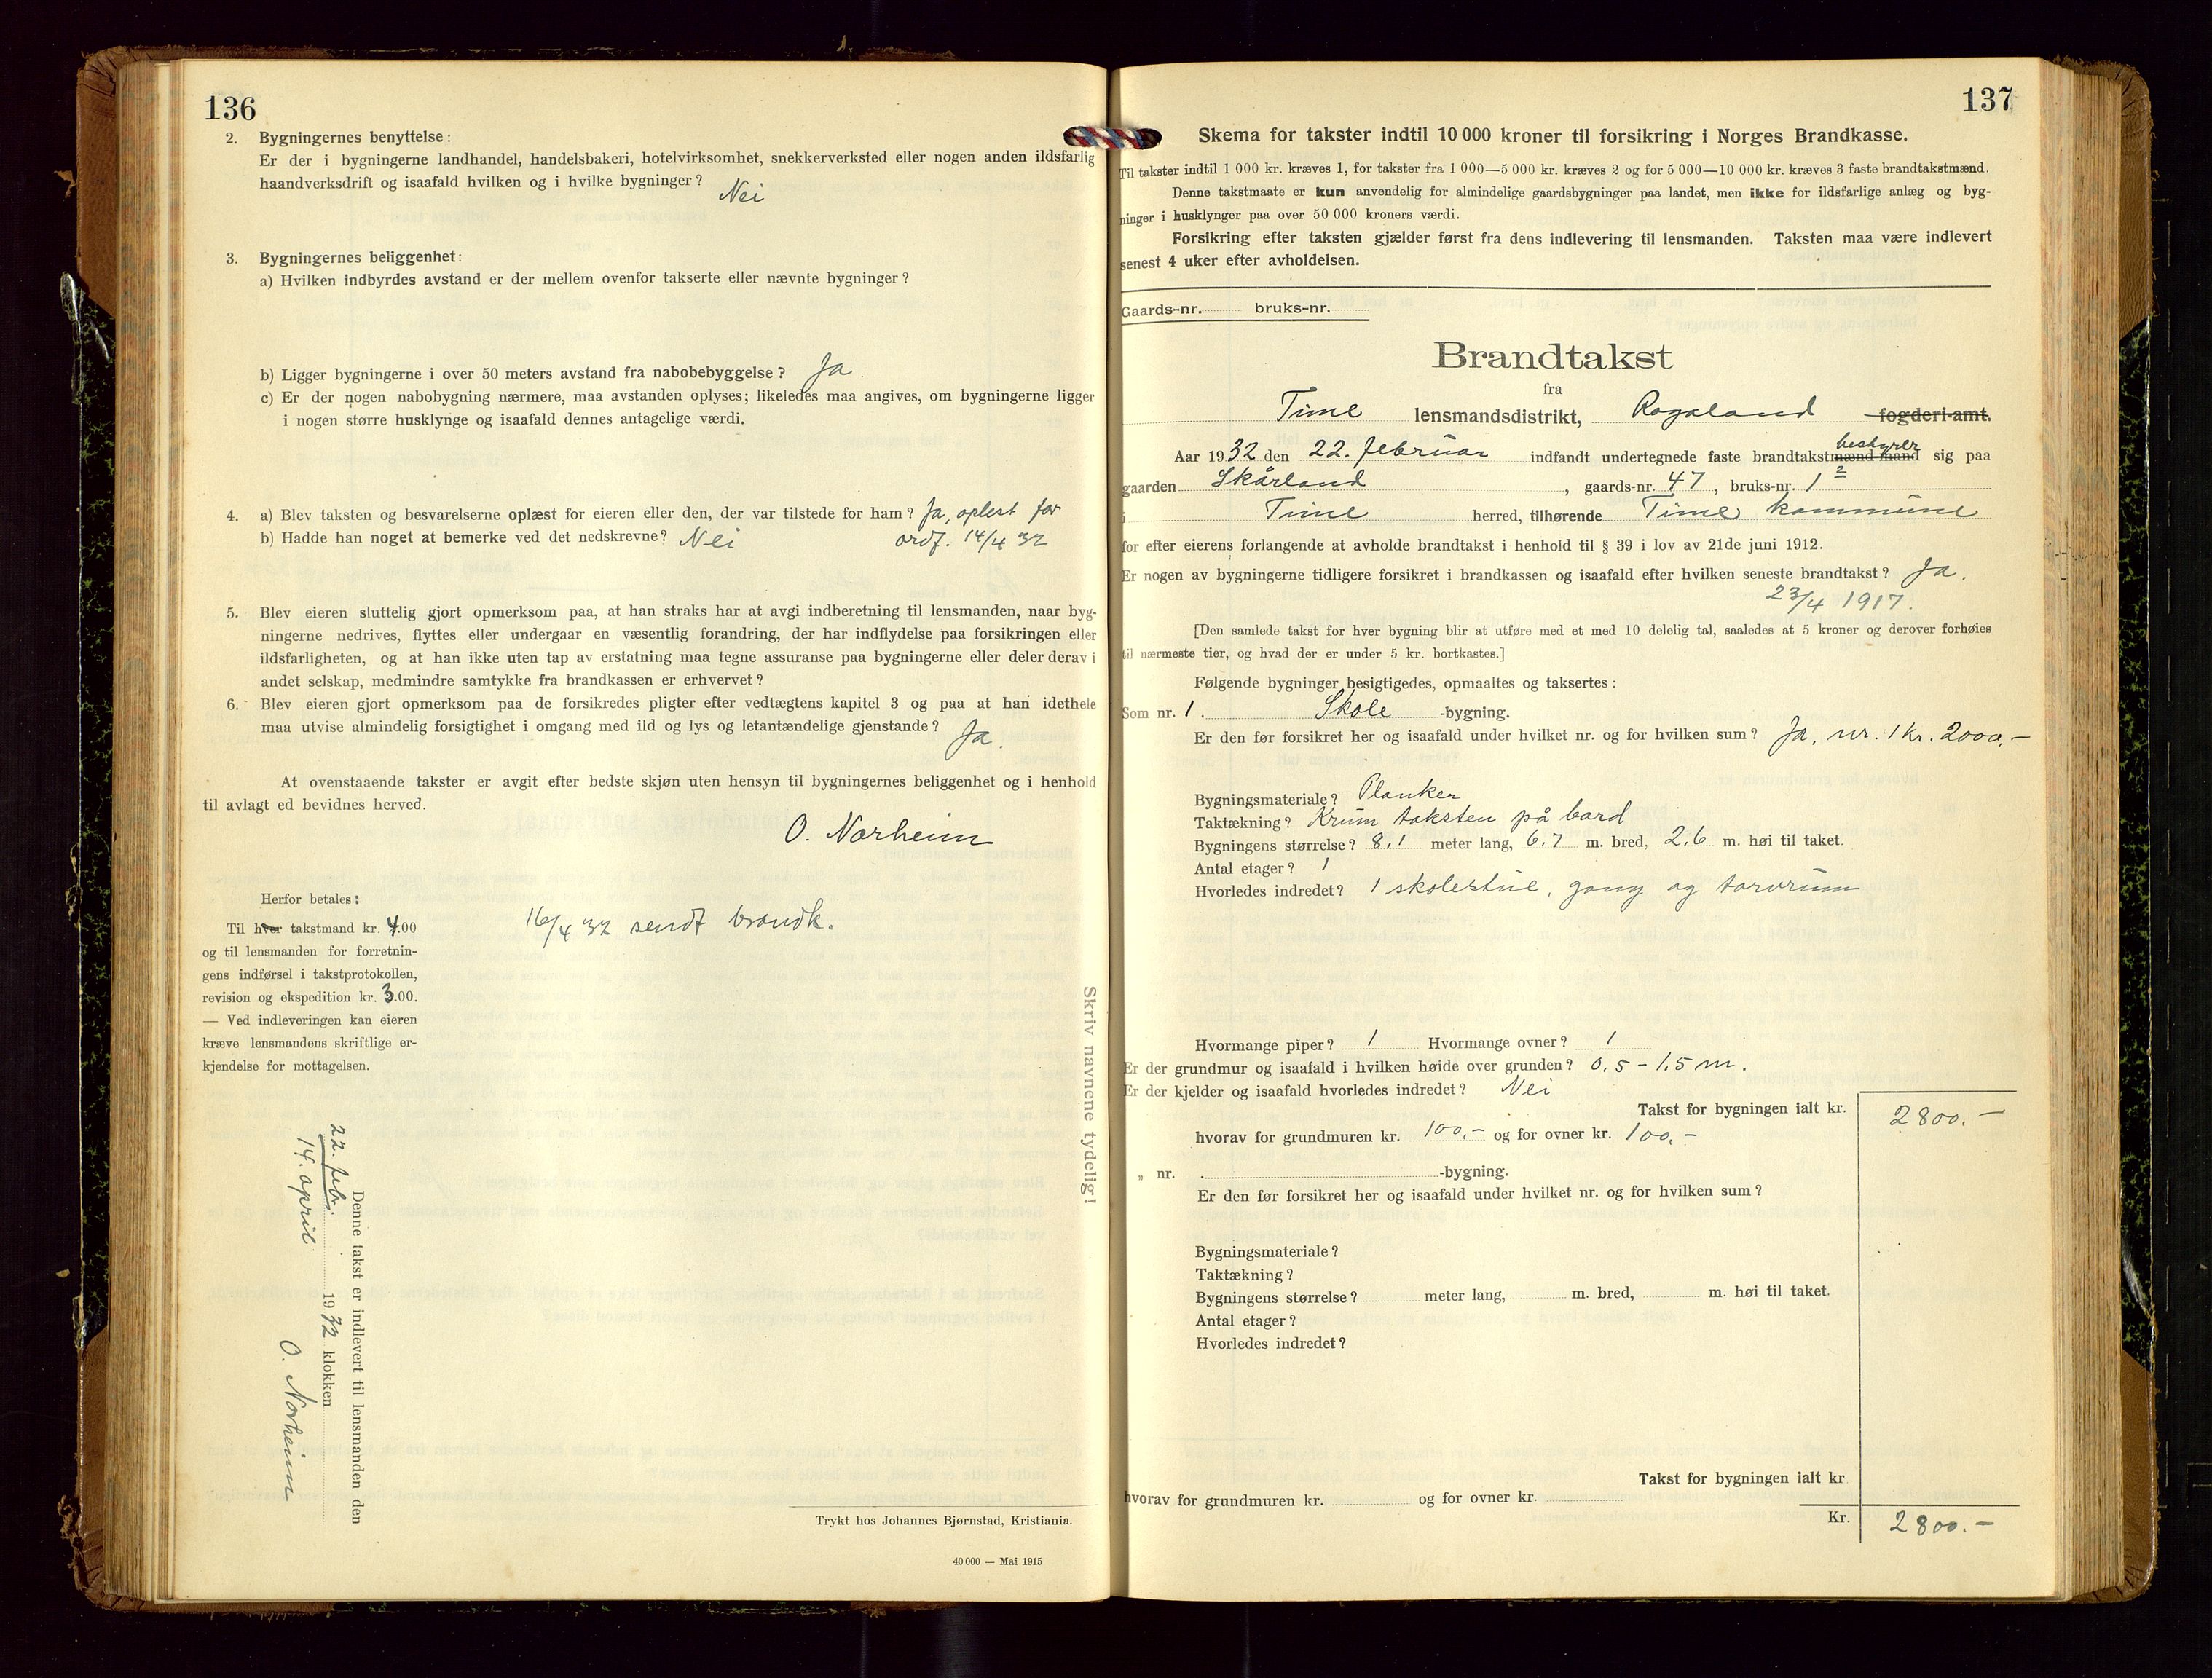 136
2. Bygningernes benyttelse:
Er der i bygningerne landhandel, handelsbakeri, hotelvirksomhet, snekkerverksted eller nogen anden ildsfarlig
haandverksdrift og isaafald hvilken og i hvilke bygninger? Nei
3. Bygningernes beliggenhet:
a) Hvilken indbyrdes avstand er der mellem ovenfor takserte eller nævnte bygninger?
b) Ligger bygningerne i over 50 meters avstand fra nabobebyggelse? Ja
c) Er der nogen nabobygning nærmere, maa avstanden oplyses; likeledes maa angives, om bygningerne ligger
i nogen større husklynge og isaafald dennes antagelige værdi.
4. a) Blev taksten og besvarelserne oplæst for eieren eller den, der var tilstede for ham? Ja, oplest for
b) Hadde han noget at bemerke ved det nedskrevne? Nei ordf. 14/4 32
5. Blev eieren sluttelig gjort opmerksom paa, at han straks har at avgi indberetning til lensmanden, naar byg-
ningerne nedrives, flyttes eller undergaar en væsentlig forandring, der har indflydelse paa forsikringen eller
ildsfarligheten, og at han ikke uten tap av erstatning maa tegne assuranse paa bygningerne eller deler derav i
andet selskap, medmindre samtykke fra brandkassen er erhvervet?
6. Blev eieren gjort opmerksom paa de forsikredes pligter efter vedtægtens kapitel 3 og paa at han idethele
maa utvise almindelig forsigtighet i omgang med ild og lys og letantændelige gjenstande? Ja.
At ovenstaaende takster er avgit efter bedste skjøn uten hensyn til bygningernes beliggenhet og i henhold
til avlagt ed bevidnes herved.
O. Norheim
Herfor betales:
Til hver takstmand kr. 4.00
og til lensmanden for forretnin-
gens indførsel i takstprotokollen,
revision og ekspedition kr. 3.00.
— Ved indleveringen kan eieren
kræve lensmandens skriftlige er-
kjendelse for mottagelsen.
16/4 32 sendt brandk.
Skriv navnene tydelig!
Denne takst er indlevert til lensmanden den
22. feb.
14. april 1932 klokken
O. Norheim
Trykt hos Johannes Bjørnstad, Kristiania.
40 000 — Mai 1915
137
Skema for takster indtil 10 000 kroner til forsikring i Norges Brandkasse.
Til takster indtil 1 000 kr. kræves 1, for takster fra 1 000—5 000 kr. kræves 2 og for 5 000—10 000 kr. kræves 3 faste brandtakstmænd.
Denne takstmaate er kun anvendelig for almindelige gaardsbygninger paa landet, men ikke for ildsfarlige anlæg og byg-
ninger i husklynger paa over 50 000 kroners værdi.
Forsikring efter taksten gjælder først fra dens indlevering til lensmanden. Taksten maa være indlevert
senest 4 uker efter avholdelsen.
Gaards-nr. bruks-nr.
Brandtakst
fra
Time lensmandsdistrikt, Rogaland fogderi-amt.
bestyrer
Aar 1932 den 22. februar indfandt undertegnede faste brandtakstmænd-mand sig paa
gaarden Skårland, gaards-nr. 47, bruks-nr. 1 2
i Time herred, tilhørende Time kommune
for efter eierens forlangende at avholde brandtakst i henhold til § 39 i lov av 21de juni 1912.
Er nogen av bygningerne tidligere forsikret i brandkassen og isaafald efter hvilken seneste brandtakst? Ja.
23/4 1917.
[Den samlede takst for hver bygning blir at utføre med et med 10 delelig tal, saaledes at 5 kroner og derover forhøies
til nærmeste tier, og hvad der er under 5 kr. bortkastes.]
Følgende bygninger besigtigedes, opmaaltes og taksertes:
Som nr. 1. Skole -bygning.
Er den før forsikret her og isaafald under hvilket nr. og for hvilken sum? Ja, nr. 1 kr. 2000,-
Bygningsmateriale? Planker
Taktækning? Krum taksten på bord
Bygningens størrelse? 8,1 meter lang, 6,7 m. bred, 2,6 m. høi til taket.
Antal etager? 1
Hvorledes indredet? 1 skolestue, gang og torvrum
Hvormange piper? 1 Hvormange ovner? 1
Er der grundmur og isaafald i hvilken høide over grunden? 0,5 - 1,5 m.
Er der kjelder og isaafald hvorledes indredet? Nei
Takst for bygningen ialt kr. 2800.-
hvorav for grundmuren kr. 100,- og for ovner kr. 100,-
„ nr. -bygning.
Er den før forsikret her og isaafald under hvilket nr. og for hvilken sum?
Bygningsmateriale?
Taktækning?
Bygningens størrelse? meter lang, m. bred, m. høi til taket.
Antal etager?
Hvorledes indredet?
Takst for bygningen ialt kr
hvorav for grundmuren kr. og for ovner kr.
Kr. 2800.-